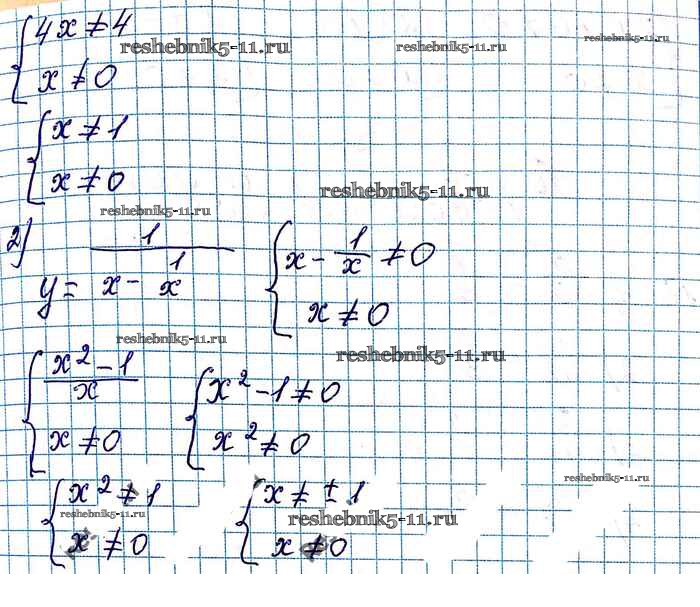 {4x ≠ 4
reshebnik5-11.ru reshebnik5-11.ru reshebnik5-11.ru
x ≠ 0
{x ≠ 1
x ≠ 0
reshebnik5-11.ru
reshebnik5-11.ru
2) y = 1/(x - 1/x) {x - 1/x ≠ 0
x ≠ 0
reshebnik5-11.ru reshebnik5-11.ru
{(x² - 1)/x {x² - 1 ≠ 0
x ≠ 0 x² ≠ 0
reshebnik5-11.ru
{x² ≠ 1 {x ≠ ± 1
reshebnik5-11.ru reshebnik5-11.ru
x ≠ 0 x ≠ 0